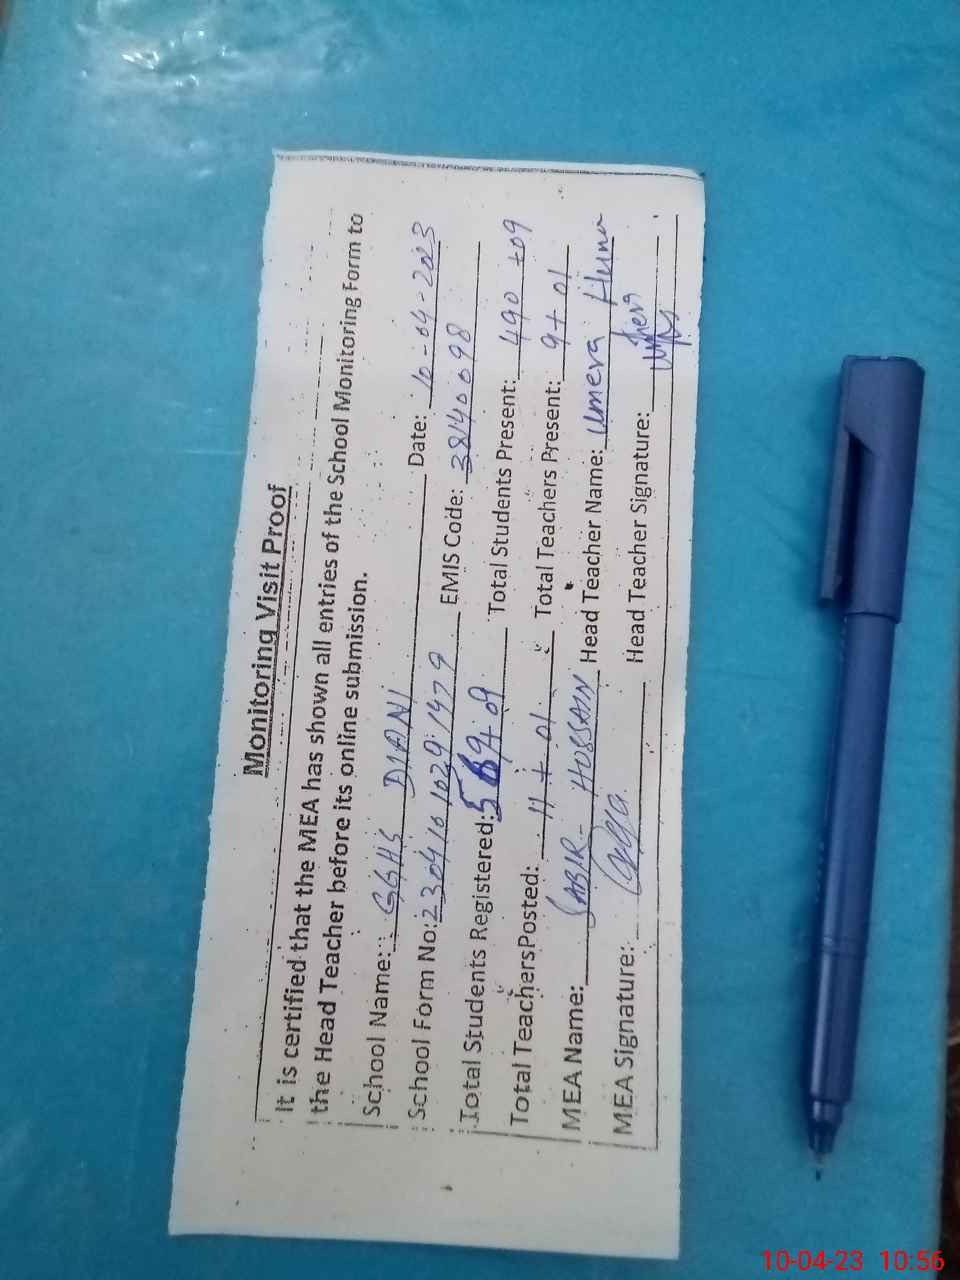 Monitoring Visit Proof
It is certified that the MEA has shown all entries of the School Monitoring Form to
the Head Teacher before its online submission.
School Name: GGHS DIANI Date: 10-04-2023
School Form No: 23041010291479 EMIS Code: 38140098
Total Students Registered: 569+09 Total Students Present: 490+09
Total TeachersPosted: 11+01 Total Teachers Present: 9+01
MEA Name: SABIR HUSSAIN Head Teacher Name: Umeva Huma
MEA Signature: Head Teacher Signature:
10-04-23 10:56